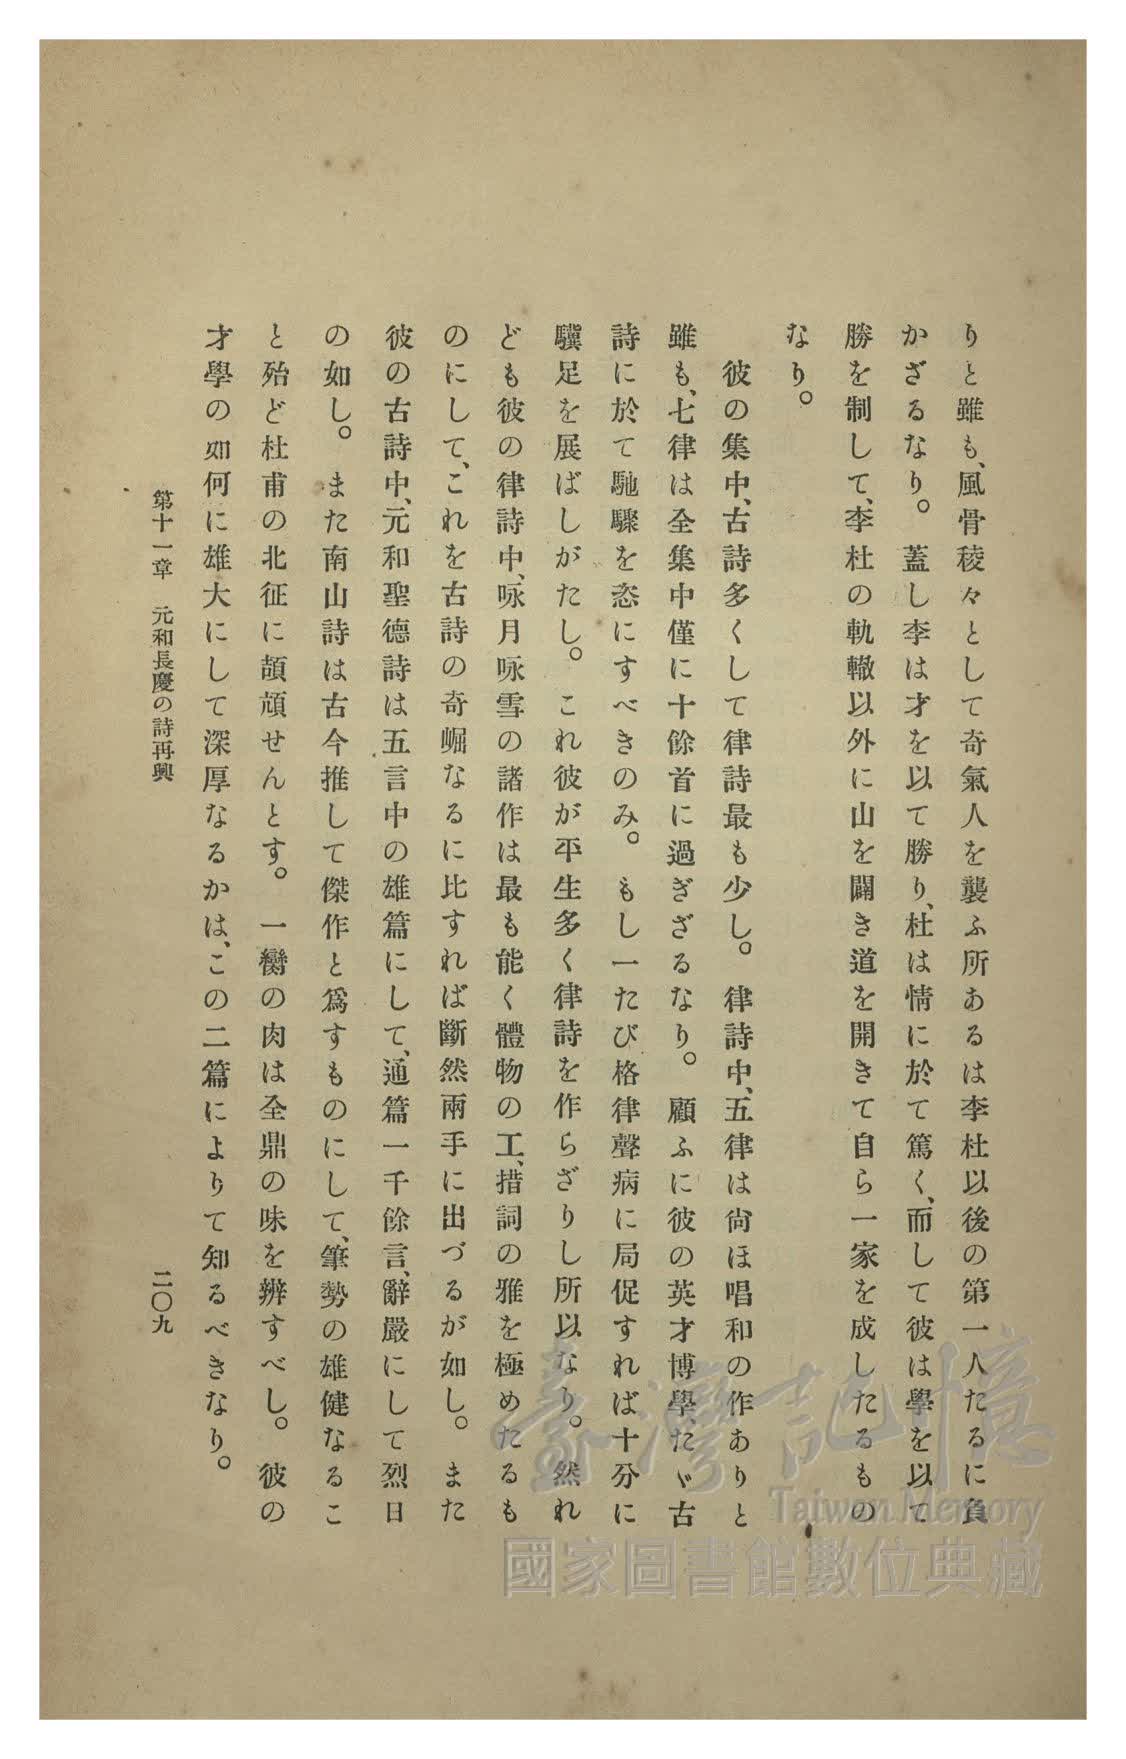 りと雖も、風骨稜々として奇氣人を襲ふ所あるは李杜以後の第一人たるに負
かざるなり。蓋し李は才を以て勝り、杜は情に於て篤く、而して彼は學を以て
勝を制して、李杜の軌轍以外に山を闢き道を開きて自ら一家を成したるもの
なり。
彼の集中、古詩多くして律詩最も少し。律詩中、五律は尙ほ唱和の作ありと
雖も、七律は全集中僅に十餘首に過ぎざるなり。顧ふに彼の英才博學、たゞ古
詩に於て馳驟を恣にすべきのみ。もし一たび格律聲病に局促すれば十分に
驥足を展ばしがたし。これ彼が平生多く律詩を作らざりし所以なり。然れ
ども彼の律詩中、咏月咏雪の諸作は最も能く體物の工、措詞の雅を極めたるも
のにして、これを古詩の奇崛なるに比すれば斷然兩手に出づるが如し。また
彼の古詩中、元和聖德詩は五言中の雄篇にして、通篇一千餘言、辭嚴にして烈日
の如し。また南山詩は古今推して傑作と爲すものにして、筆勢の雄健なるこ
と殆ど杜甫の北征に頡頏せんとす。一臠の肉は全鼎の味を辨すべし。彼の
才學の如何に雄大にして深厚なるかは、この二篇によりて知るべきなり。
第十一章　元和長慶の詩再興
二〇九
臺灣記憶
Taiwan Memory
國家圖書館數位典藏